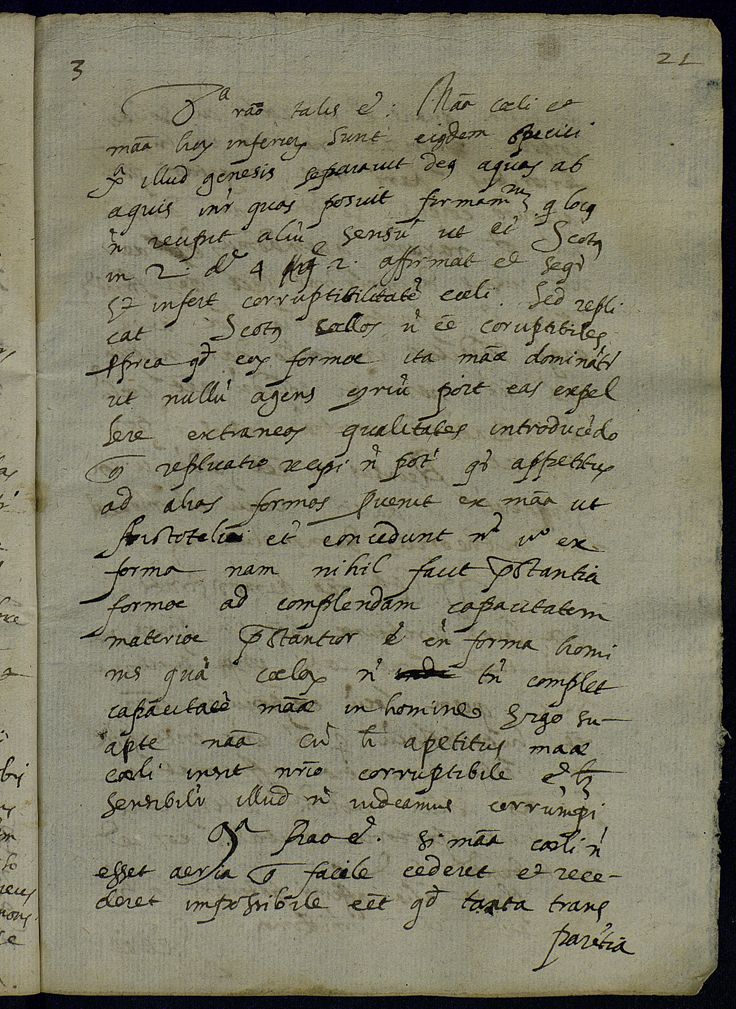 3 21
rāo talis ē: Māa cœli et
māa hoȝ inferioȝ sunt eiqdem speciei
illud genesis separavit deq aquas ab
aquis int quas posuit firmam q locq
n̄ recipit aliū sensū ut ei Scotq
in 2. d. 4 q 2. affirmat et seqr
infert corruptibilitatē cœli. Sed repli
cat Scotq cœlos n̄ ēe coruptibiles
ꝓpterea qd eoȝ formæ ita māæ dominātr
ut nullū agens ꝯriū pōt eas expel
lere extraneas qualitates introducēdo
replicatio recipi n̄ pōt qa appetitus
ad alias formas ꝓvenit ex māa ut
Aristotelici et concedunt n̄ v̊ ex
forma nam nihil facit p̄stantia
formæ ad complendam capacitatem
materiæ p̄stantior ē en̄ forma homi
nis quā cœloȝ n̄ tn̄ complet
capacitatē māæ in homine Ergo su-
apte nāa cū apetitus māæ
cœli insit corruptibile
sensibilr illud n̄ videamus corrumpi
Rāo ē. si māa cœli n̄
esset aeria facile cederet et rece-
deret impossibile eēt qd tanta trans
parētia